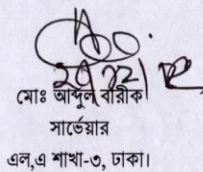 মোঃ আব্দুল বারীক
সার্ভেয়ার
এল,এ শাখা-৩, ঢাকা।